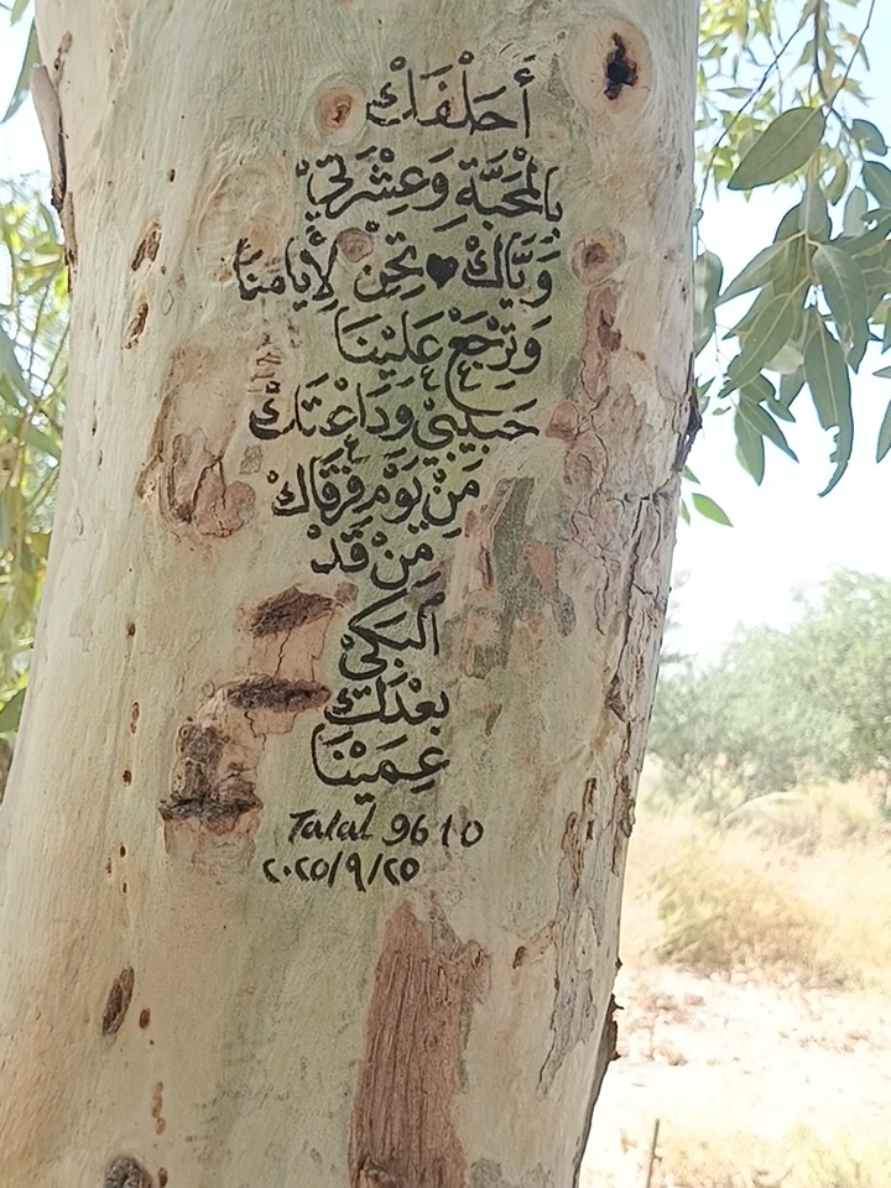 أَحَلْفَكْ
بِالْمَحَبَّةِ وَعِشْرَتِيْ
وَيَّاكْ ♥ تَحِنْ لِأَيامنَا
وَتِرْجَعْ عَلَيْنَا
حَبِيبِيْ وَدَاعْتَكْ
مَنْ يَوْم فَرقَاكْ
مِنْ قَدْ
الْبَكَيْ
بعْدَكْ
عِمَيْنَا
Talal 9610
٢٠٢٥/٩/٢٥